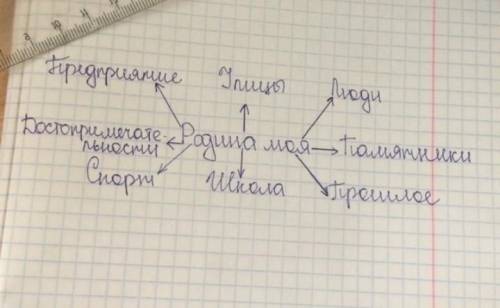 Предприятие
Улицы
Люди
Достопримеча­те-
льности
Родина моя
Памятники
Спорт
Школа
Прошлое